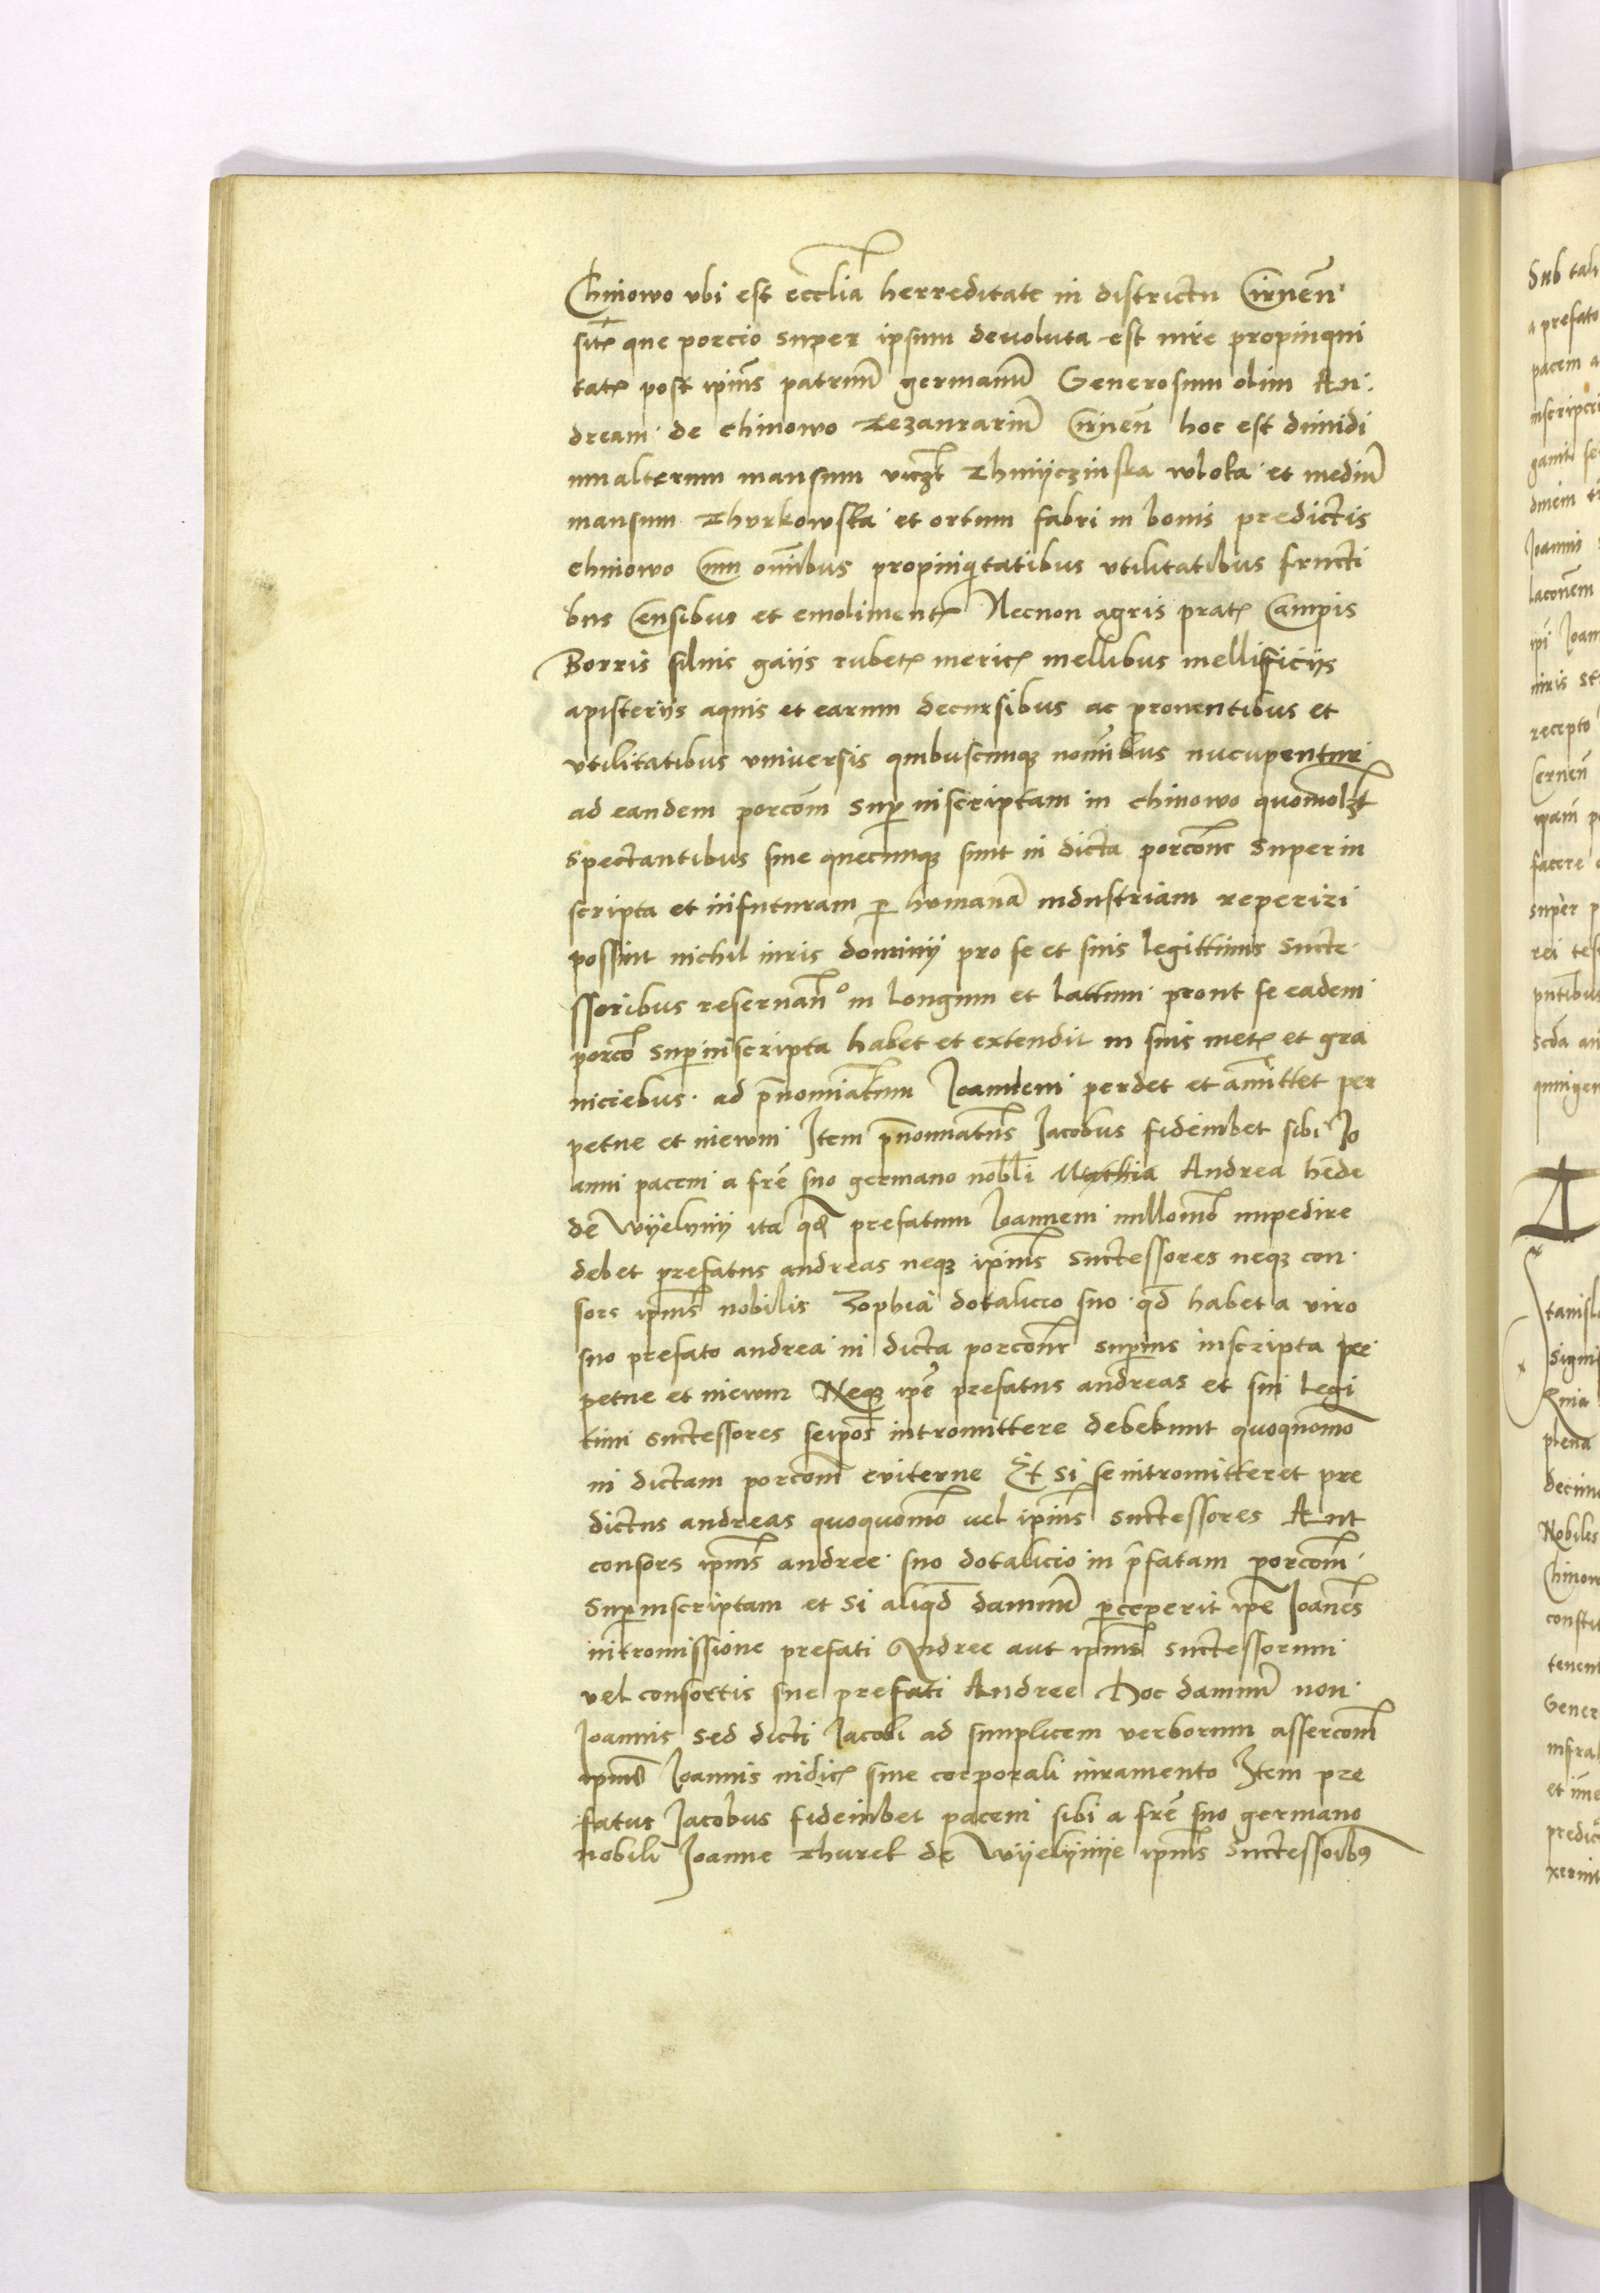 Chinowo vbi est eccliã herreditate in districtu Cirneñ
sit que porcio super ipsum deuoluta est iure propinqui
tat post ipiũs patruũ germanũ Generosum olim An
dream de chinowo Tezaurariũ Cirneñ hoc est dimidi
um alterum mansum viczt Thmijczinska wloka et mediũ
mansum Thurkowska et ortum fabri in bonis predictis
chinowo Cum oĩbus propinqitatibus vtilitatibus fructi
bus Censibus et emoliment Necnon agris prat Campis
Borris siluis gaijs rubet meric mellibus mellificijs
apisterijs aquis et earum decursibus ac prouentibus et
vtilitatibus vniuersis quibuscunq nomĩbus nucupentur
ad eandem porcoem superinscriptam in chinowo quomolzt
spectantibus siue quecunq sunt in dicta porcone superin
scripta et infuturam per humanã industriam reperiri
possint nichil iuris dominij pro se et suis legittimis succe
ssoribus reseruañ in longum et lattum prout se eadem
porco superinscripta habet et extendit in suis met et gra
niciebus ad prenomiatum Joannem perdet et amittet per
petue et in ewm Item prenomiatus Jacobus fideiubet sibi Jo
anni pacem a frẽ suo germano nobli Mathia Andrea hẽde
de Wijelynij ita qd prefatum Joannem nullomo impedire
debet prefatus andreas neq ipius successores neq con
sors ipius nobilis Zophia dotalicio suo qd habet a viro
suo prefato andrea in dicta porcone superius inscripta per
petue et in ewm Neq ipe prefatus andreas et sui legi
timi successores seipos intromittere debebunt quoquomo
in dictam porcoem eviterne Et si se intromitteret pre
dictus andreas quoquomo vel ipius successores Aut
consors ipius andree suo dotalicio in prefatam porcoem
superinscriptam et si aliqd damnũ perceperit ipe Joanes
intromissione prefati Andree aut ipius successorum
vel consortis sue prefati Andree Hoc damnũ non
Joannis sed dicti Jacobi ad simplicem verborum assercoem
ipius Joannis iudic sine corporali iuramento Item pre
fatus Jacobus fideiubet pacem sibi a frẽ suo germano
nobili Joanne Thurek de Wijelijnije ipius successoribus